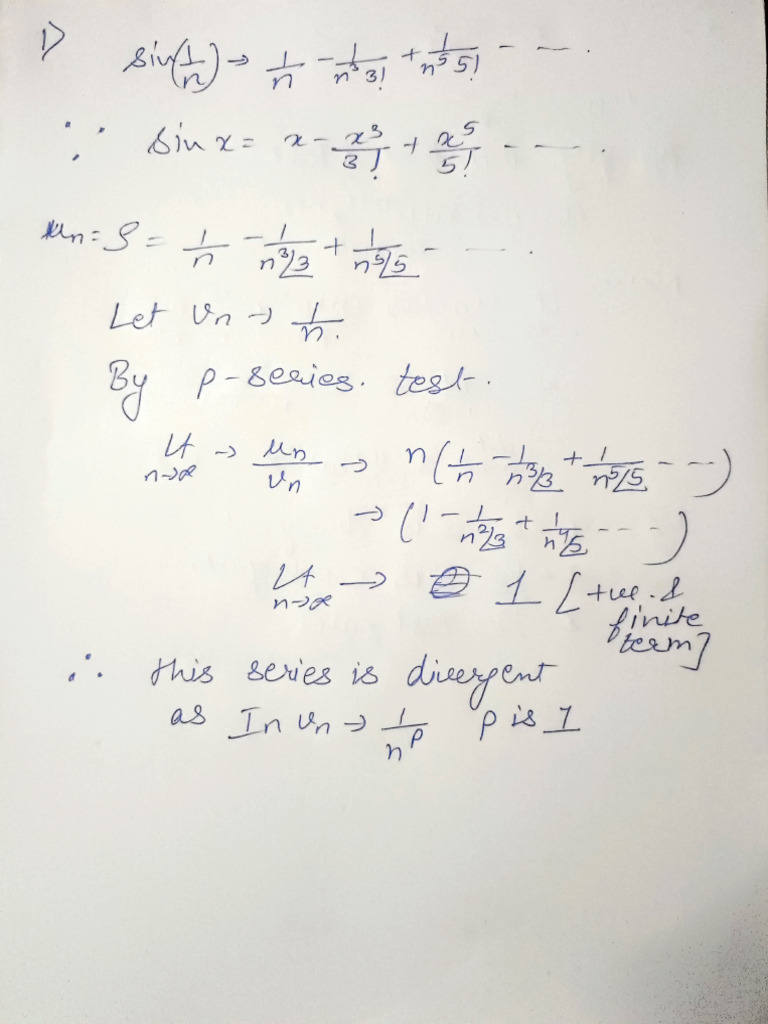 1) sin(1/n) → 1/n - 1/n³3! + 1/n⁵5! - - .
∵ Sin x = x - x³/3! + x⁵/5! - - .
un = S = 1/n - 1/n³∠3 + 1/n⁵∠5 - - .
Let vn → 1/n.
By p-series. test.
Lt n→∞ → un/vn → n(1/n - 1/n³∠3 + 1/n⁵∠5 - --)
→ (1 - 1/n²∠3 + 1/n⁴∠5 - - - -)
Lt n→∞ → 1 [+ve. &
finite
term]
∴ this series is divergent
as In vn → 1/nᵖ p is 1